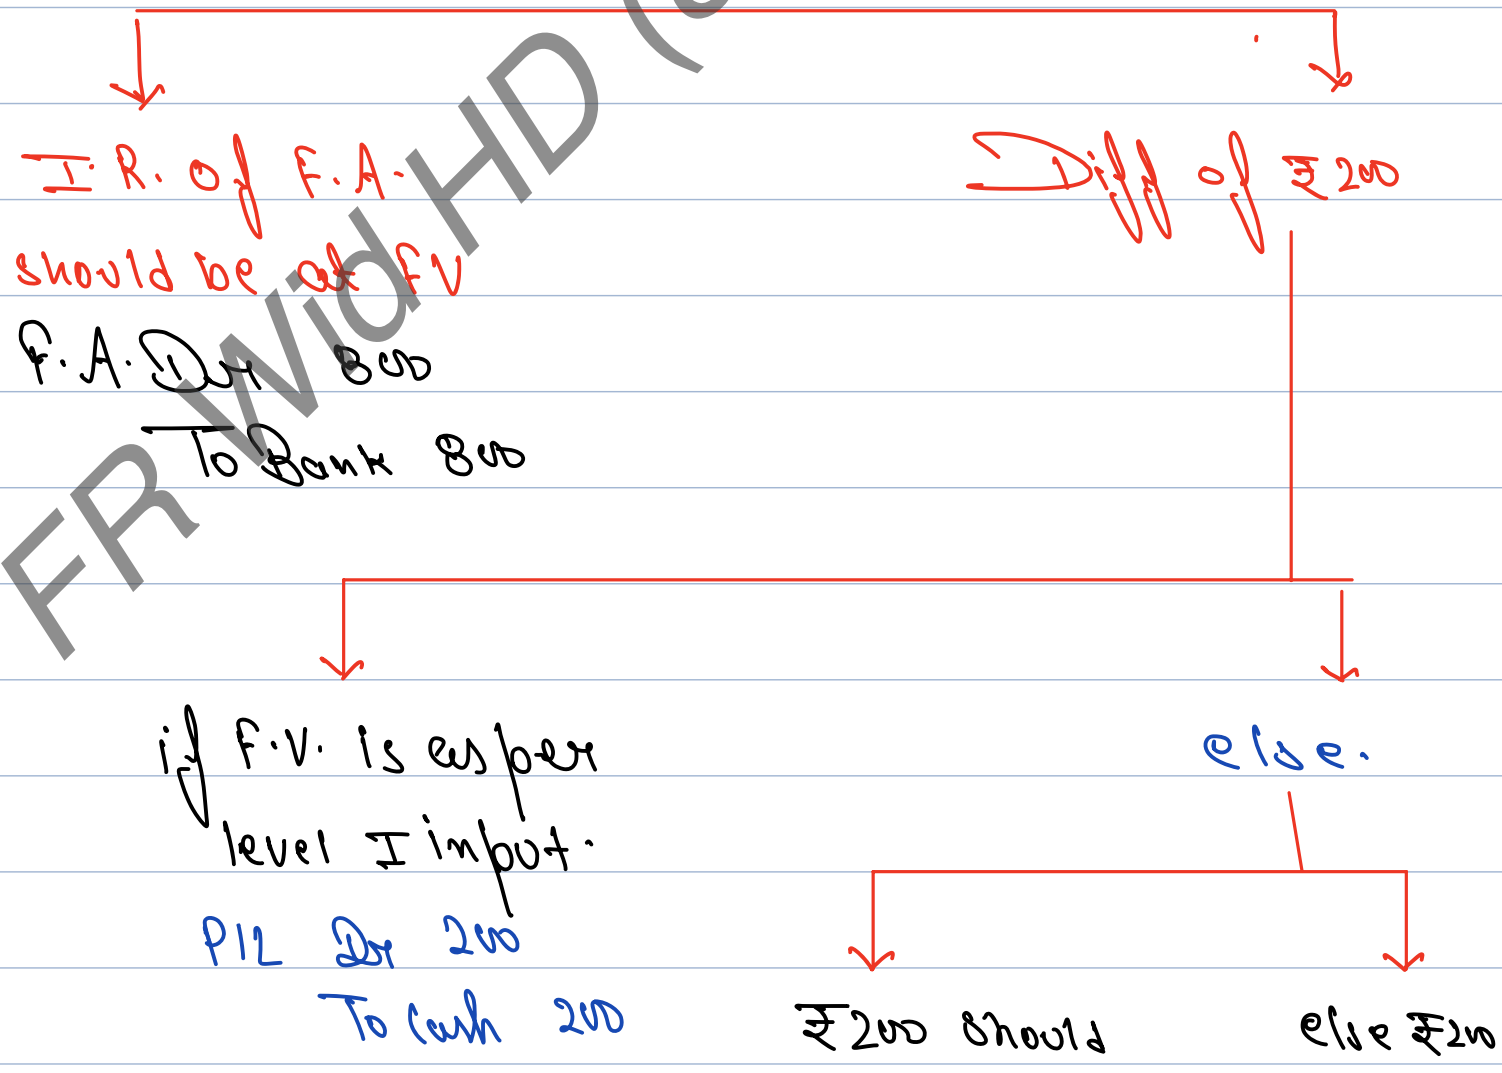 I.R. of F.A.
should be at FV
F.A. Dr 800
To Bank 800
Diff of ₹200
if F.V. is as per
level I input.
P/L Dr 200
To Cash 200
else.
₹200 should
else ₹200
FR Wid HD (